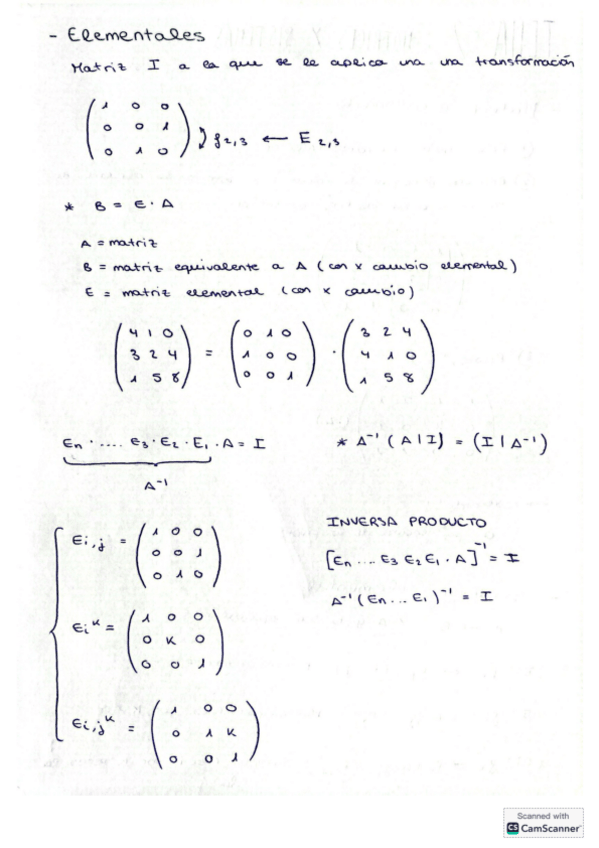 - Elementales
Matriz I a la que se le aplica una una transformación
1 0 0
0 0 1
0 1 0
f2,3 ← E 2,3
* B = E · A
A = matriz
B = matriz equivalente a A (con x cambio elemental)
E = matriz elemental (con x cambio)
4 1 0
3 2 4
1 5 8
=
0 1 0
1 0 0
0 0 1
·
3 2 4
4 1 0
1 5 8
En · .... E3 · E2 · E1 · A = I
A-1
* A-1 (A | I) = (I | A-1)
Ei,j =
1 0 0
0 0 1
0 1 0
Ei K =
1 0 0
0 K 0
0 0 1
Ei,j K =
1 0 0
0 1 K
0 0 1
INVERSA PRODUCTO
[En ... E3 E2 E1 · A]-1 = I
A-1 (En ... E1)-1 = I
Scanned with
CS CamScanner